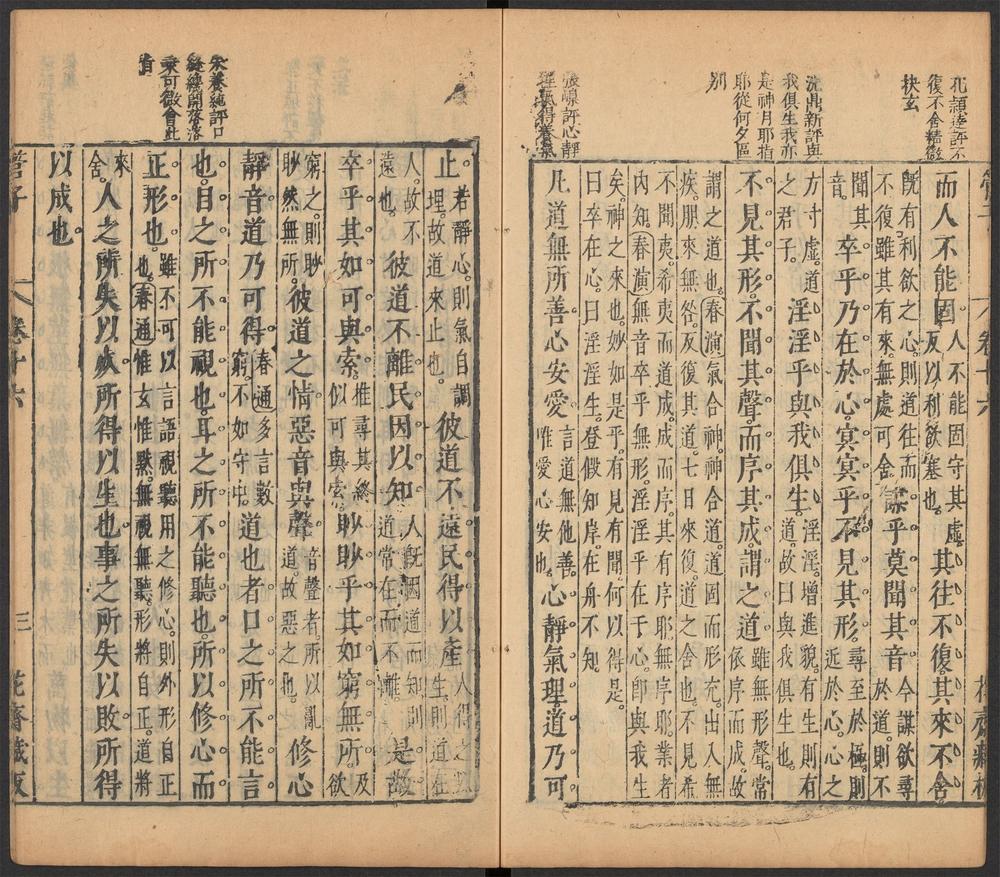 孔穎達評不
復不舍精微
抉玄
沈鼎新評與
我俱生我亦
是神月耶指
耶從何夕區
別
張嵲評心靜
理氣得養氣
而人不能固。人不能固守其虛。反以利欲塞也。其往不復。其來不舍。
旣有利欲之心。則道往而不復。雖其有來。無處可舍 謀乎莫聞其音 今謀欲尋於道。則不
聞其音。卒乎乃在於心。冥冥乎不見其形。尋至於極。則近於心。心之
方寸虛。道之君子。淫淫乎與我俱生。淫淫。增進貌。有生則有道。故曰與我俱生也。
不見其形。不聞其聲。而序其成。謂之道 雖無形聲。常依序而成。故
謂之道也。春演氣合神。神合道。道固而形充。出入無
疾。朋來無咎。反復其道。七日來復。道之舍也。不見希
不聞夷。希夷而道成。成而序。其有序耶。無序耶。業者
內知。春演無音卒乎無形。淫淫乎在于心。卽與我生
矣。神之來也。妙如是乎。有見有聞。何以得是。
日卒在心。日淫淫生。登假知岸。在舟不知。
凡道無所善心安愛 言道無他善。唯愛心安也。心靜氣理。道乃可
朱養純評口
縫纔開落落
乘可微會此
旨
止 若靜心。則氣自調理。故道來止也。彼道不遠。民得以產 人得之以生。則道在
人。故不遠也。彼道不離。民因以知 人旣因道而知。則道常在而不離。是故
卒乎其如可與索。推尋其終。似可與索。眇眇乎其如窮無所。欲及
窮之。則眇眇然無所。彼道之情惡音與聲 音聲者。所以亂道。故惡之也。修心
靜音。道乃可得。春通多言數窮。不如守中。道也者口之所不能言
也。目之所不能視也。耳之所不能聽也。所以修心而
正形也。雖不可以言語視聽。用之修心。則外形自正也。春通惟玄惟默。無視無聽。形將自正。道將
來舍。人之所失以死所得以生也。事之所失以敗所得
以成也。
管子 卷十六 三 花齋藏板